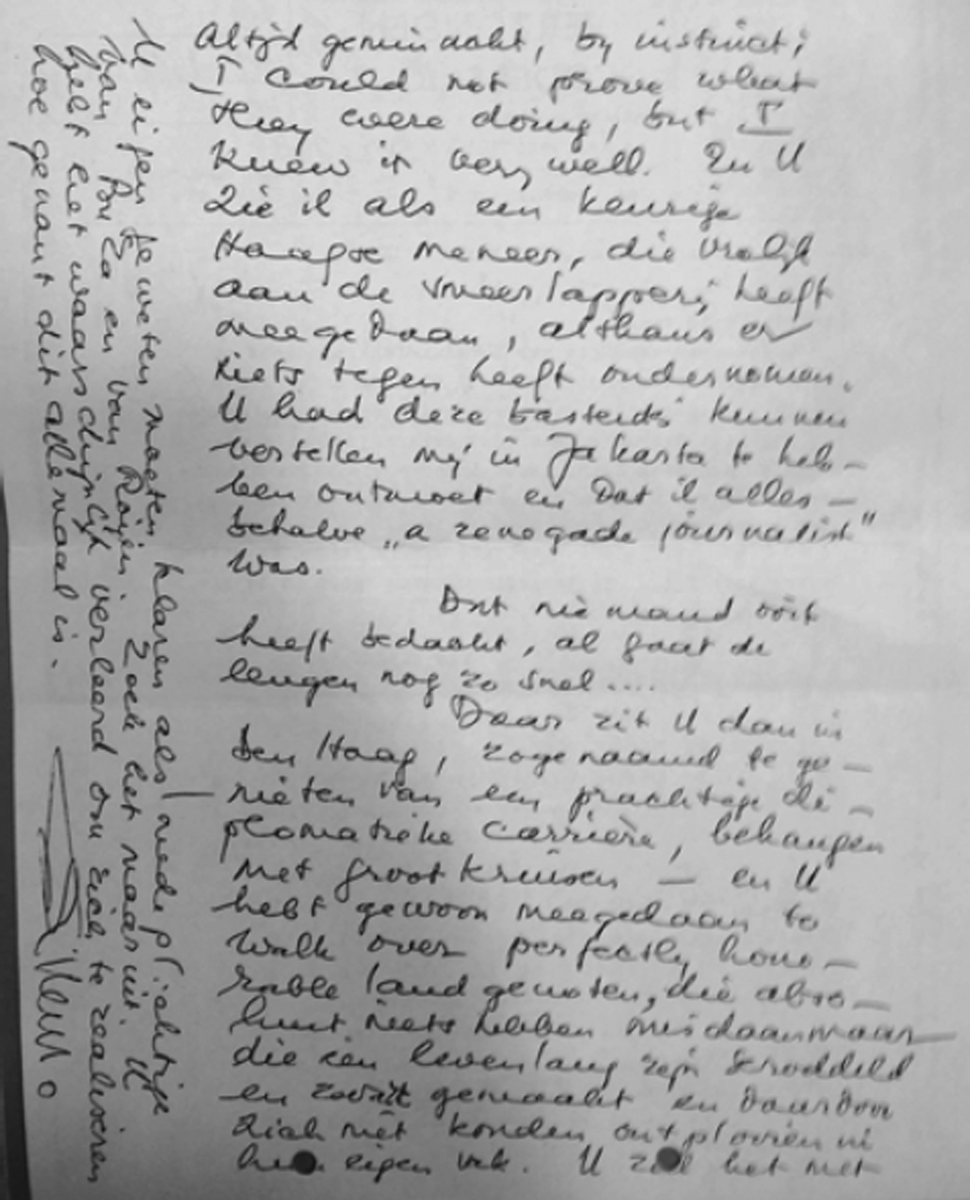 altijd gewinackt, by instinct;
I could not prove what
they were doing, but I
knew it very well. En U
zie ik als een keurige
Haagse meneer, die vrolijk
aan de smeerlapperij heeft
meegedaan, althans er
niets tegen heeft ondernomen.
U had deze bastards kunnen
vertellen mij in Jakarta te heb-
ben ontmoet en dat ik alles -
behalve „a renegade journalist"
was.
Dat niemand ooit
heeft bedacht, al gaat de
leugen nog zo snel....
Daar zit U dan in
den Haag, zogenaamd te ge-
nieten van een prachtige di-
plomatieke carrière, behangen
met grootkruisen — en U
hebt gewoon meegedaan to
walk over perfectly hono-
rable landgenoten, die abso-
luut niets hebben misdaan maar
die een levenlang zijn
en zwart gemaakt en daardoor
zich niet konden ontplooien in
hun eigen vak. U zal het met
U eigen geweten moeten klaren als medeplichtige
van en van Zoek het maar uit. U
hebt het waarschijnlijk verleerd om zich te realiseren
hoe gemeen dit allemaal is.